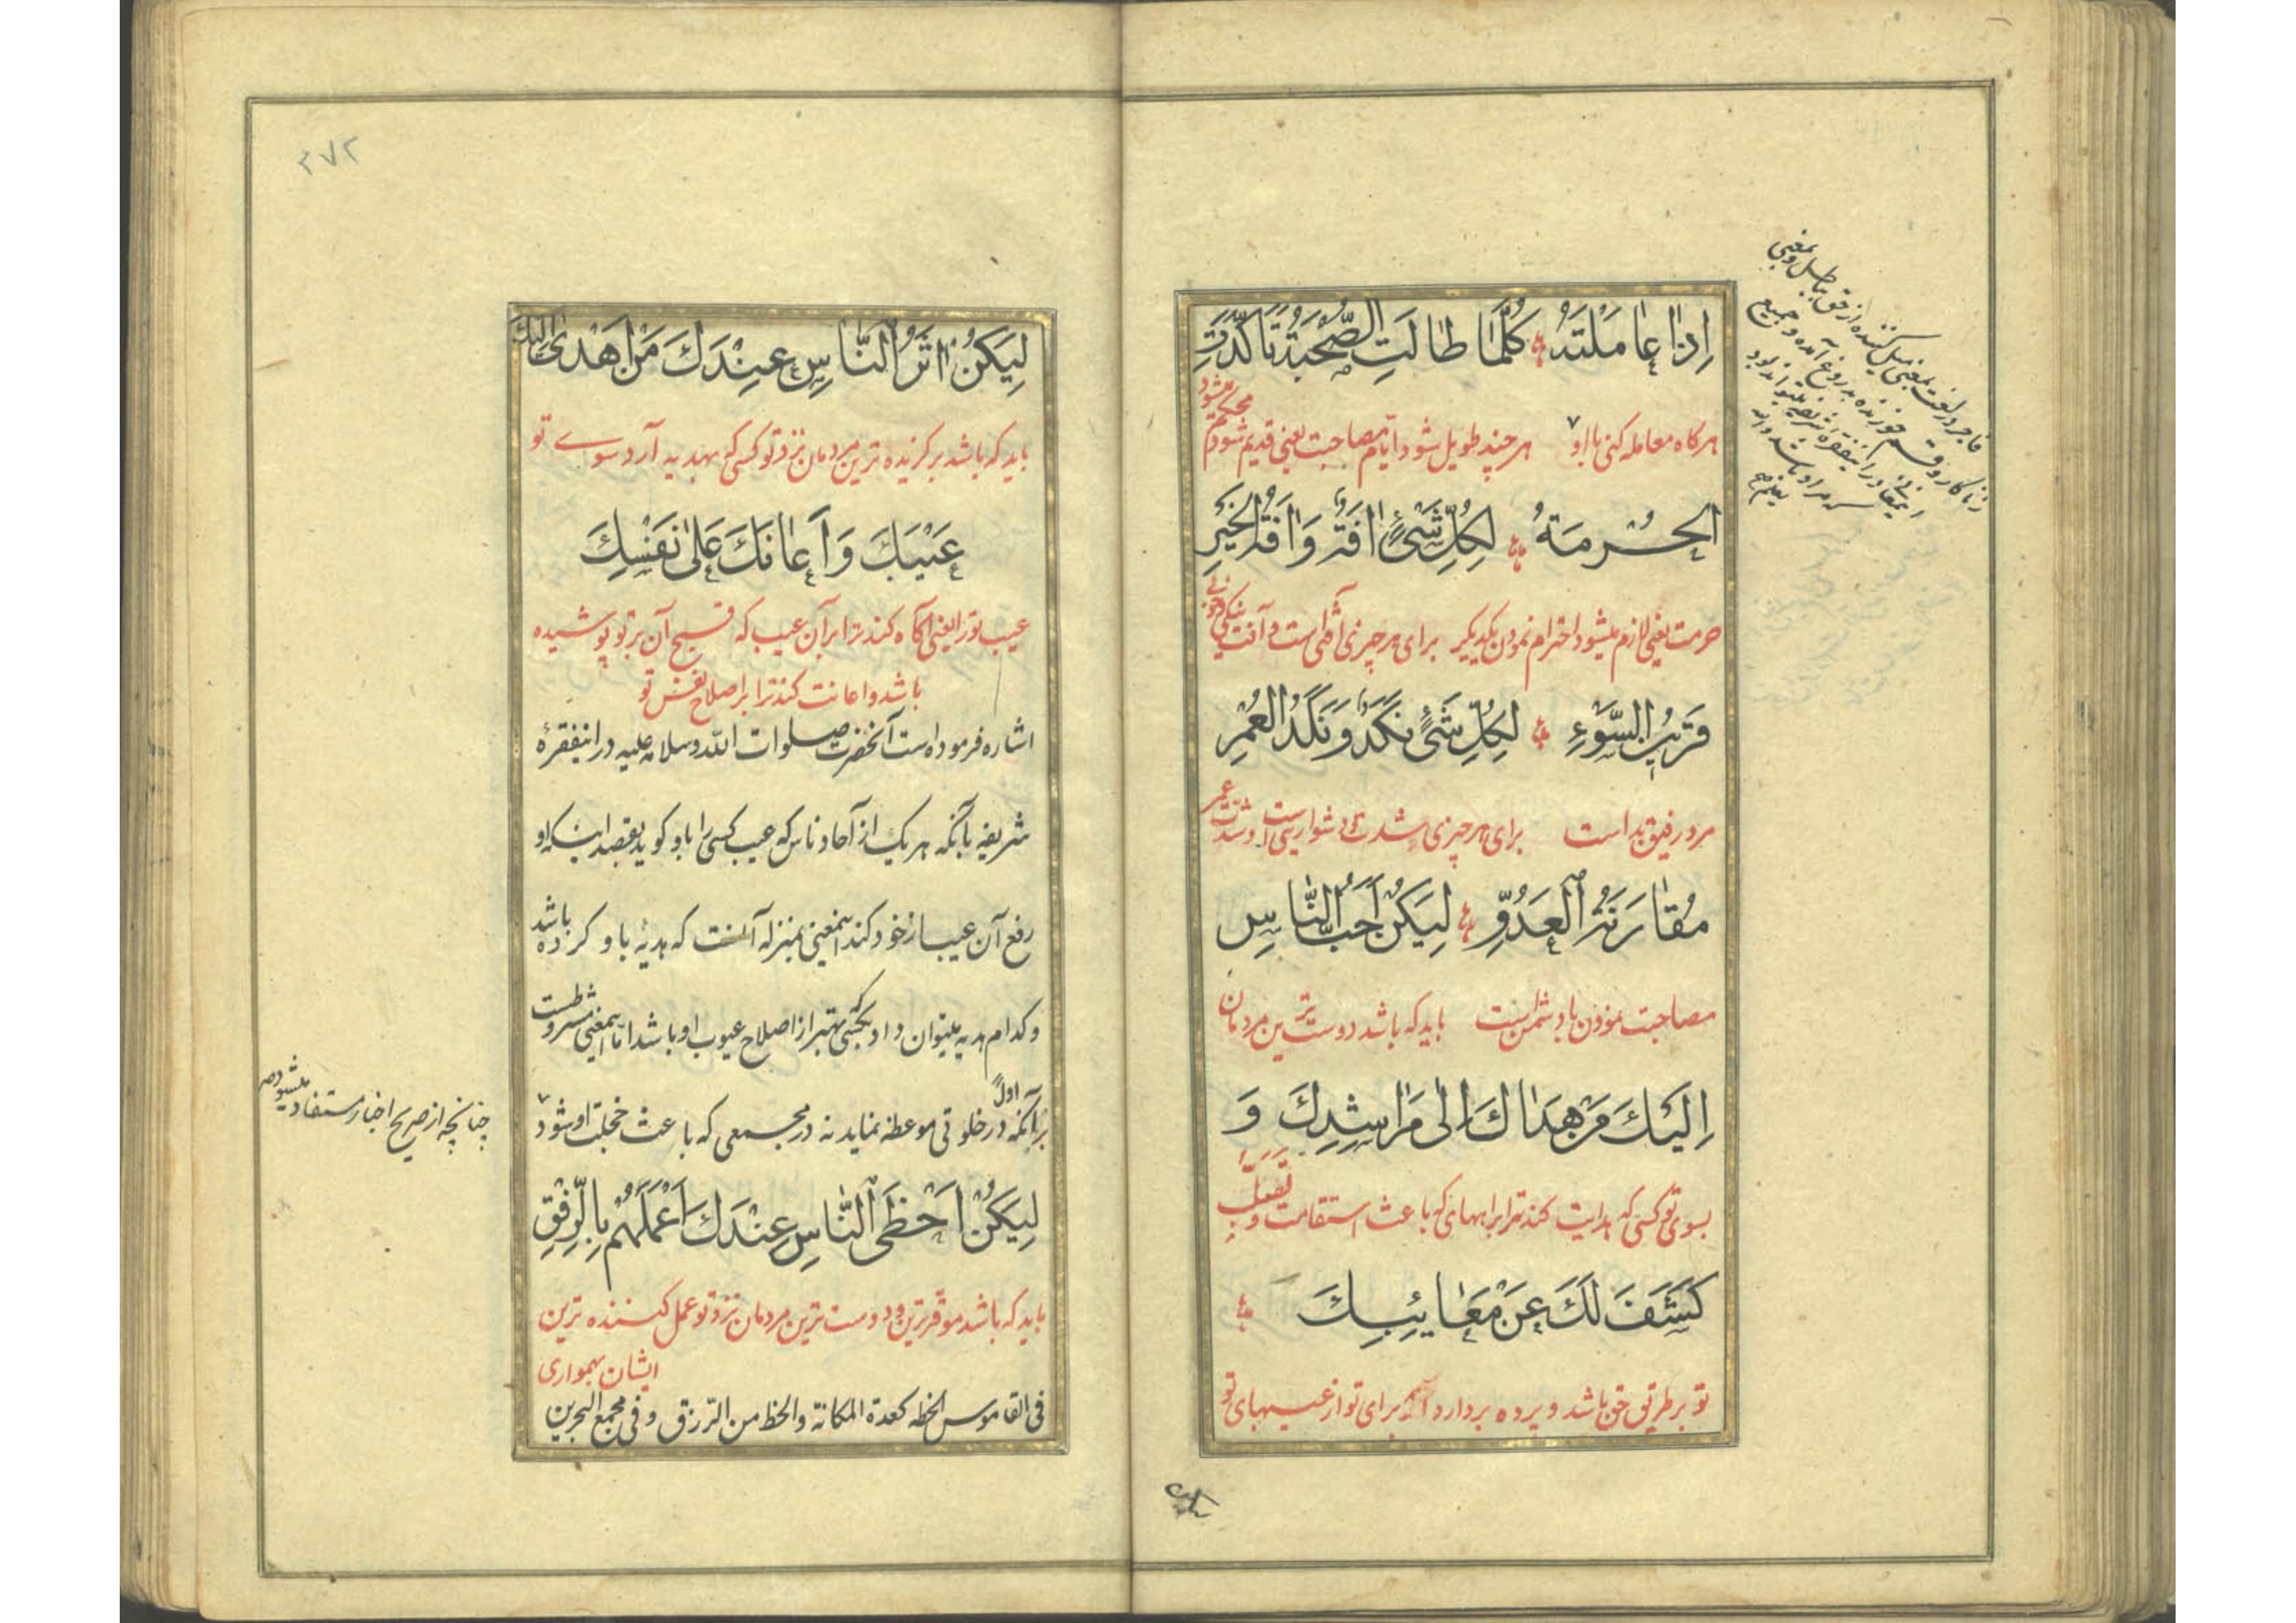 اِذا عامَلْتَهُ كُلَّمٰا طالَتِ الصُّحْبَةُ تَاَكَّدَتِ
هرکاه معامله کنی با او هرچند طویل شود ایّام مصاحبت یعنی قدیم شود محکم میشود
الحُرمَةُ لِكُلِّ شَىْءٍ اٰفَةٌ وَ اٰفَةُ الخَيْرِ
حرمت یعنی لازم میشود احترام نمودن یکدیکر برای هر چیزی آفتی است و آفت نیکی
قَرينُ السَّوْءِ لِكُلِّ شَىْءٍ نَكَدٌ وَ نَكَدُ العُمرِ
مرد رفیق بد است برای هر چیزی شدت و دشواریست و شدّت عمر
مُقٰارَنَةُ الْعَدُوِّ لِيَكُنْ اَحَبُّ النّٰاسِ
مصاحبت نمودن با دشمن است باید که باشد دوست ترین مردمان
اِلَيْكَ مَنْ هَداكَ اِلى مَراشِدِكَ وَ
بسوی تو کسی که هدایت کند ترا براههای که باعث استقامت و تصلّب
كَشَفَ لَكَ عَنْ مَعٰائِبِكَ
تو بر طریق حق باشد و پرده بردارد برای تو از عیبهای تو
لیکن
٣٧٢
لِيَكُنْ اٰثَرُ النّٰاسِ عِنْدَكَ مَنْ اَهْدىٰ اِلَيْكَ
باید که باشد برکزیده ترین مردمان نزد تو کسی که بهدیه آرد سوے تو
عَيْبَكَ وَ اَعٰانَكَ عَلىٰ نَفْسِكَ
عیب تو را یعنی آکاه کند ترا بر آن عیب که قبیح آن بر تو پوشیده
باشد و اعانت کند ترا بر اصلاح نفس تو
اشاره فرموده است آنحضرت صلوات اللّه و سلامه علیه در اینفقرهٔ
شریفه بآنکه هر یک از آحاد ناس که عیب کسی را باو کوید بقصد اینکه او
رفع آن عیب از خود کند اینمعنی بمنزله آنست که هدیهٔ باو کرده باشد
و کدام هدیه میتوان داد بکسی که بهتر از اصلاح عیوب او باشد امّا اینمعنی مشروطست
بر آنکه اولاً در خلوتی موعظه نماید نه در مجمعی که باعث خجلت او شود
چنانچه از صریح اخبار مستفاد میشود
لِيَكُنْ اَحْظَى النّٰاسِ عِنْدَكَ اَعْمَلَهُمْ بِالرِّفْقِ
باید که باشد موقّرترین و دوست ترین مردمان نزد تو عمل کننده ترین
ایشان بهمواری
فی القاموس الحظه كعدة المكانة والحظ من الرّزق و فی مجمع البحرین